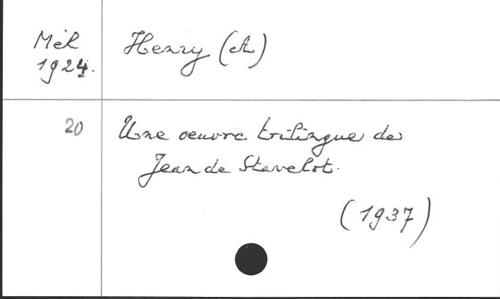 Mél Henry (A)
1924.
20 Une oeuvre trilingue de
Jean de Stavelot.
(1937)